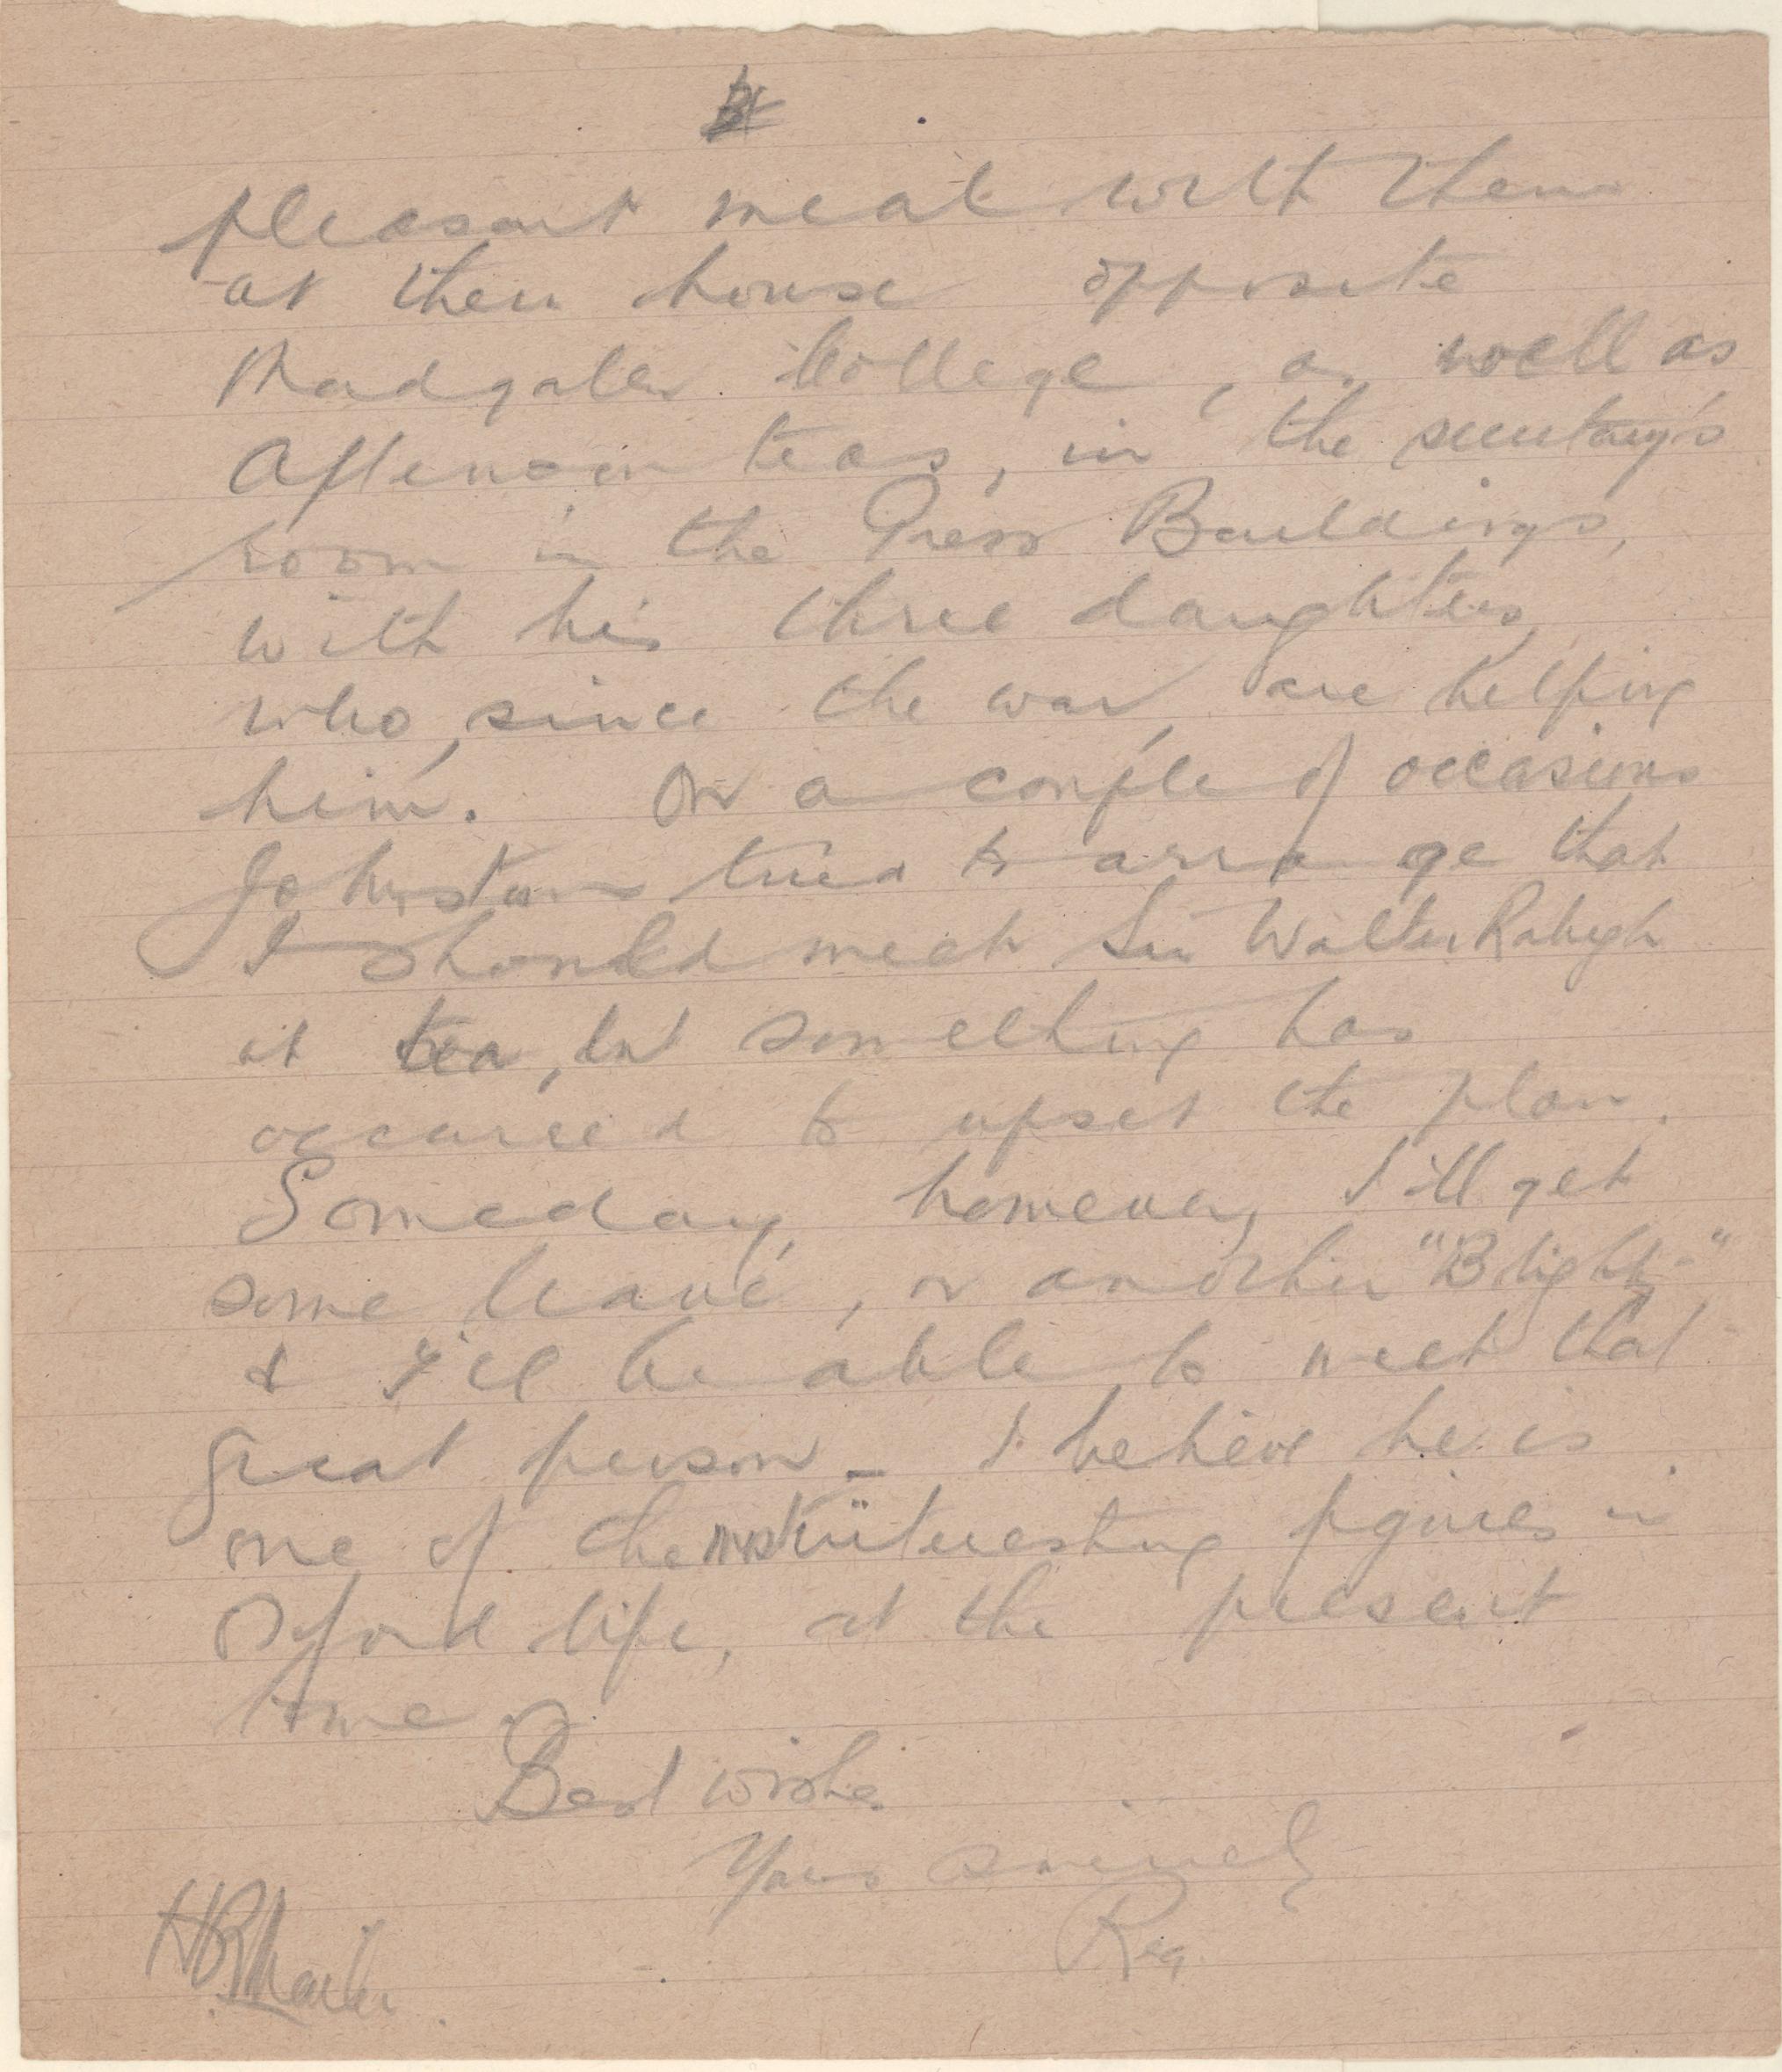 pleasant meal with them
at their house opposite
Madgalen College, as well as
Afternoon teas, in the secretary's
room in the Press Buildings,
with his three daughters,
who, since the war, are helping
him. On a couple of occasions
Johnstone tried to arrange that
I should meet Sir Walter Raleigh
at tea, but something has
occurred to upset the plan.
Someday, however, I'll get
some leave, or another "Blighty"
& I'll be able to meet that
great person _ I believe he is
one of the most interesting figures in
Oxford life, at the present
time.
Best wishes
Yours sincerely
Reg